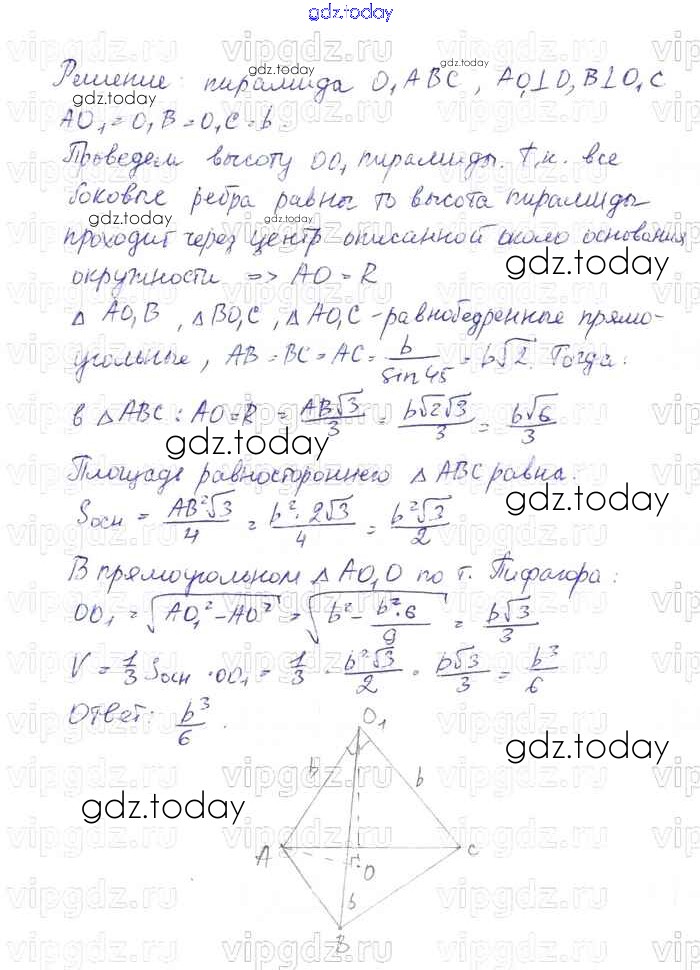 gdz.today
Решение: пирамида O₁ABC, AO₁⊥O₁B⊥O₁C
AO₁ = O₁B = O₁C = b.
Проведем высоту OO₁ пирамиды. Т.к. все
боковые ребра равны то высота пирамиды
проходит через центр описанной около основания
окружности => AO = R
△ AO₁B, △ BO₁C, △ AO₁C - равнобедренные прямо-
угольные, AB = BC = AC = b/sin 45 = b√2. Тогда:
в △ ABC: AO = R = AB√3/3 = b√2√3/3 = b√6/3
Площадь равностороннего △ ABC равна:
Sосн = AB²√3/4 = b²·2√3/4 = b²√3/2
В прямоугольном △ AO₁O по т. Пифагора:
OO₁ = √(AO₁² - AO²) = √(b² - b²·6/9) = b√3/3
V = 1/3 Sосн · OO₁ = 1/3 · b²√3/2 · b√3/3 = b³/6
Ответ: b³/6.
O₁
b b
A O C
b
B
vipgdz.ru
gdz.today